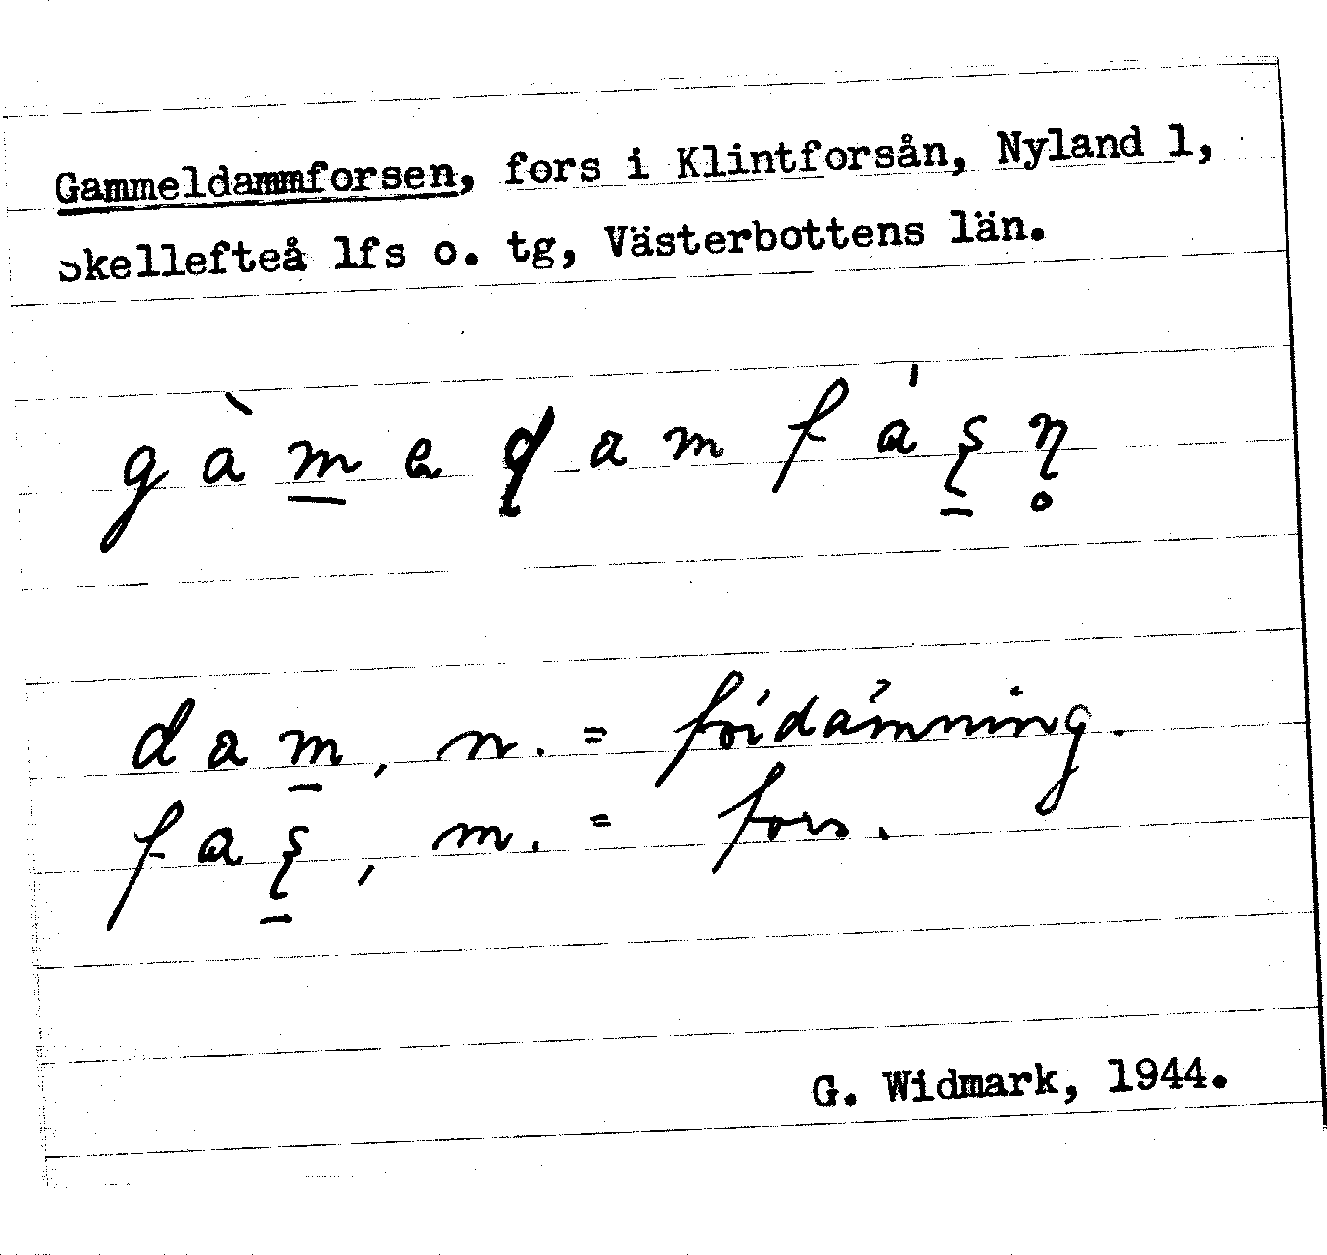 Gammeldammforsen, fors i Klintforsån, Nyland 1,
Skellefteå lfs o. tg, Västerbottens län.
g à m̲ e ɖ a m f á ʂ̲ ɳ̥
d a m̲, n. = fördämning.
f a ʂ̲, m. = fors.
G. Widmark, 1944.